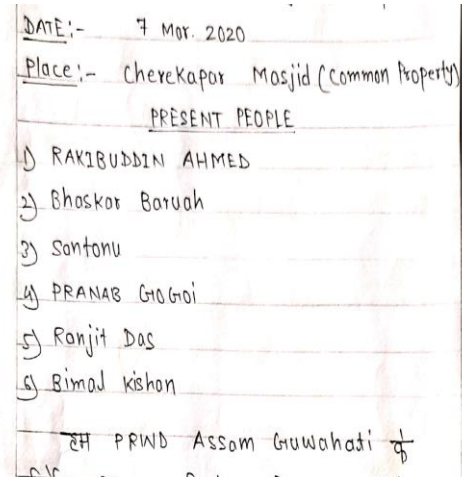 DATE:- 7 Mar. 2020
Place:- Cherekapar Masjid (Common Property)
PRESENT PEOPLE
1) RAKIBUDDIN AHMED
2) Bhaskar Baruah
3) Santonu
4) PRANAB GOGOI
5) Ranjit Das
6) Bimal Kishan
हम PRWD Assam Guwahati के